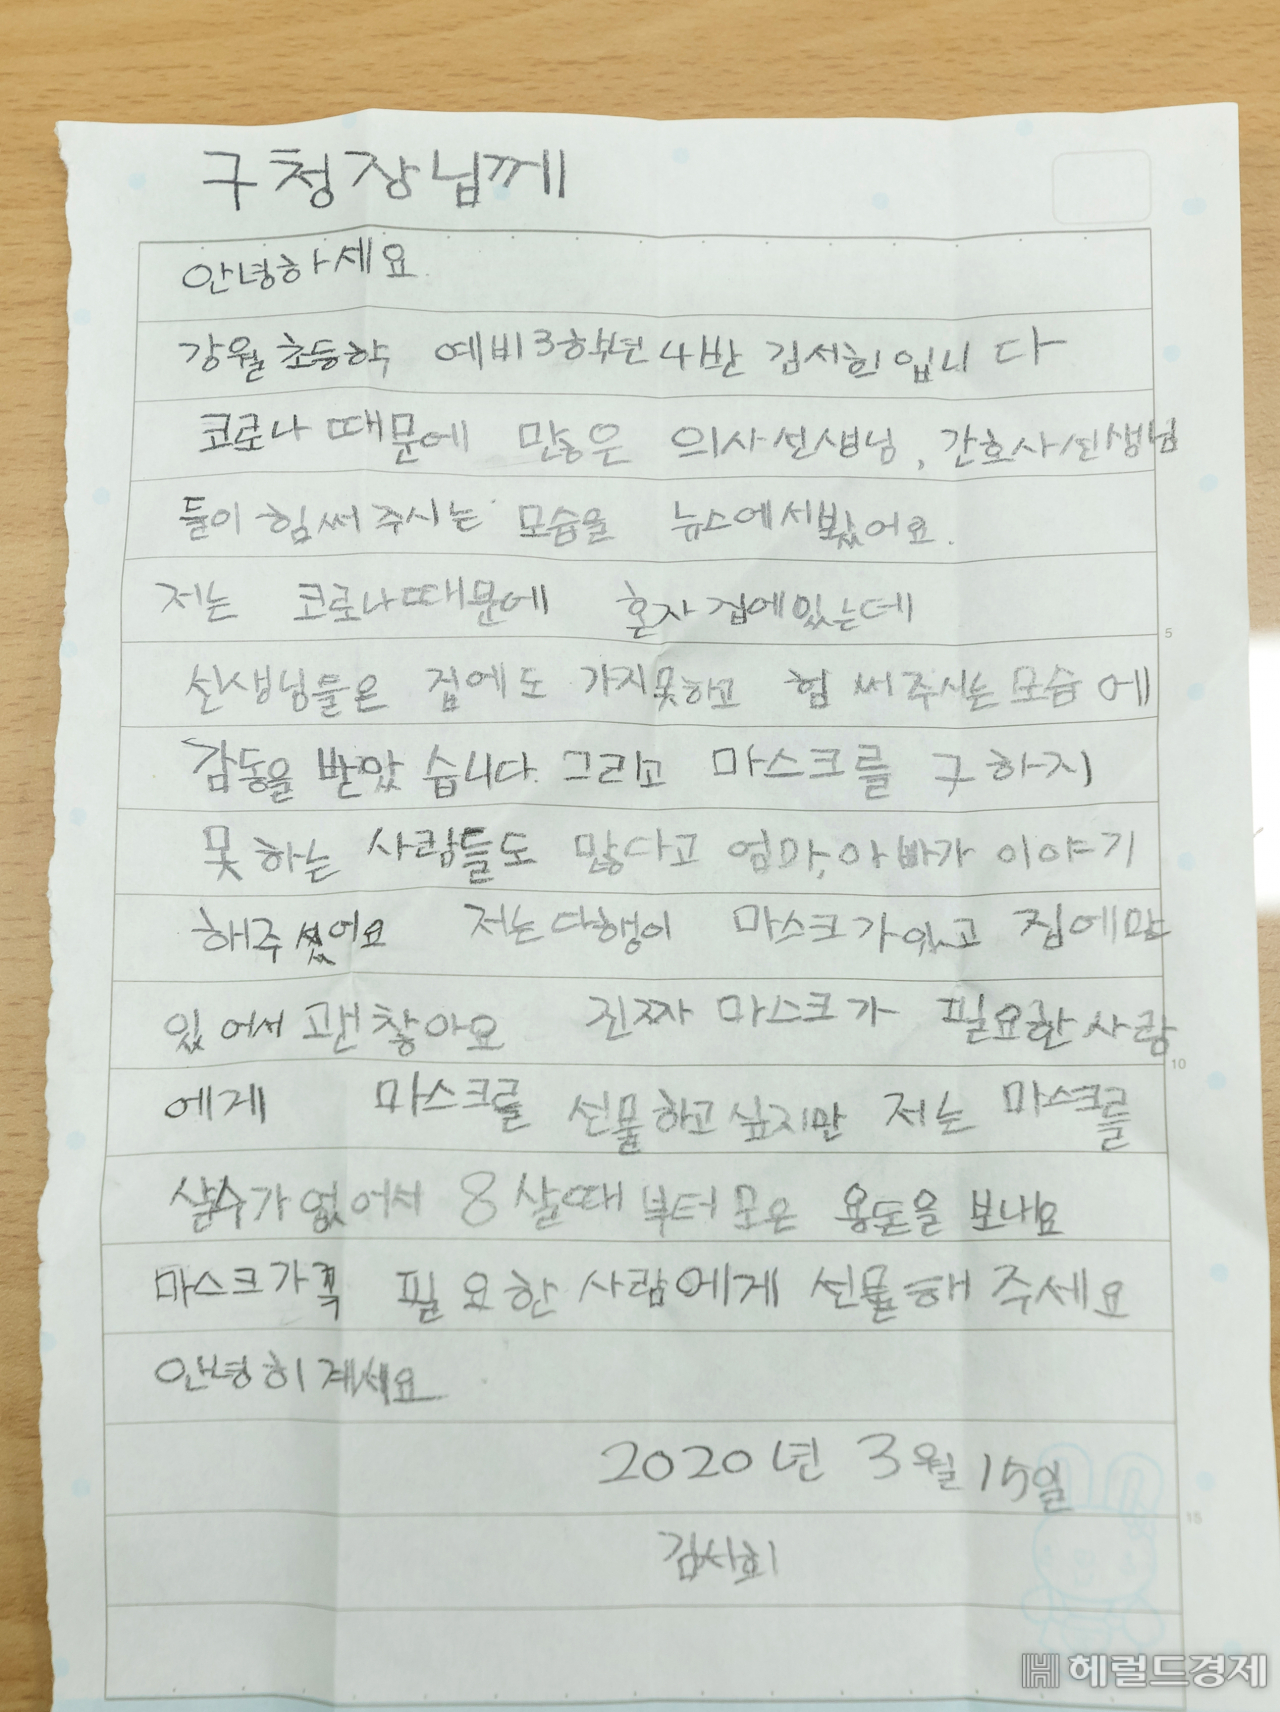 구청장님께
안녕하세요.
강월초등학 예비3학년4반 김서희입니다
코로나 때문에 많은 의사선생님, 간호사선생님
들이 힘써 주시는 모습을 뉴스에서봤어요.
저는 코로나때문에 혼자 집에있는데
선생님들은 집에도 가지못하고 힘 써주시는모습에
감동을 받았습니다. 그리고 마스크를 구하지
못하는 사람들도 많다고 엄마,아빠가 이야기
해주셨어요 저는다행이 마스크가있고 집에만
있어서 괜찮아요 진짜 마스크가 필요한사람
에게 마스크를 선물하고싶지만 저는 마스크를
살수가없어서 8살때부터 모은 용돈을 보내요
마스크가꼭 필요한사람에게 선물해주세요
안녕히계세요
2020년 3월 15일
김서희
5
10
15
헤럴드경제